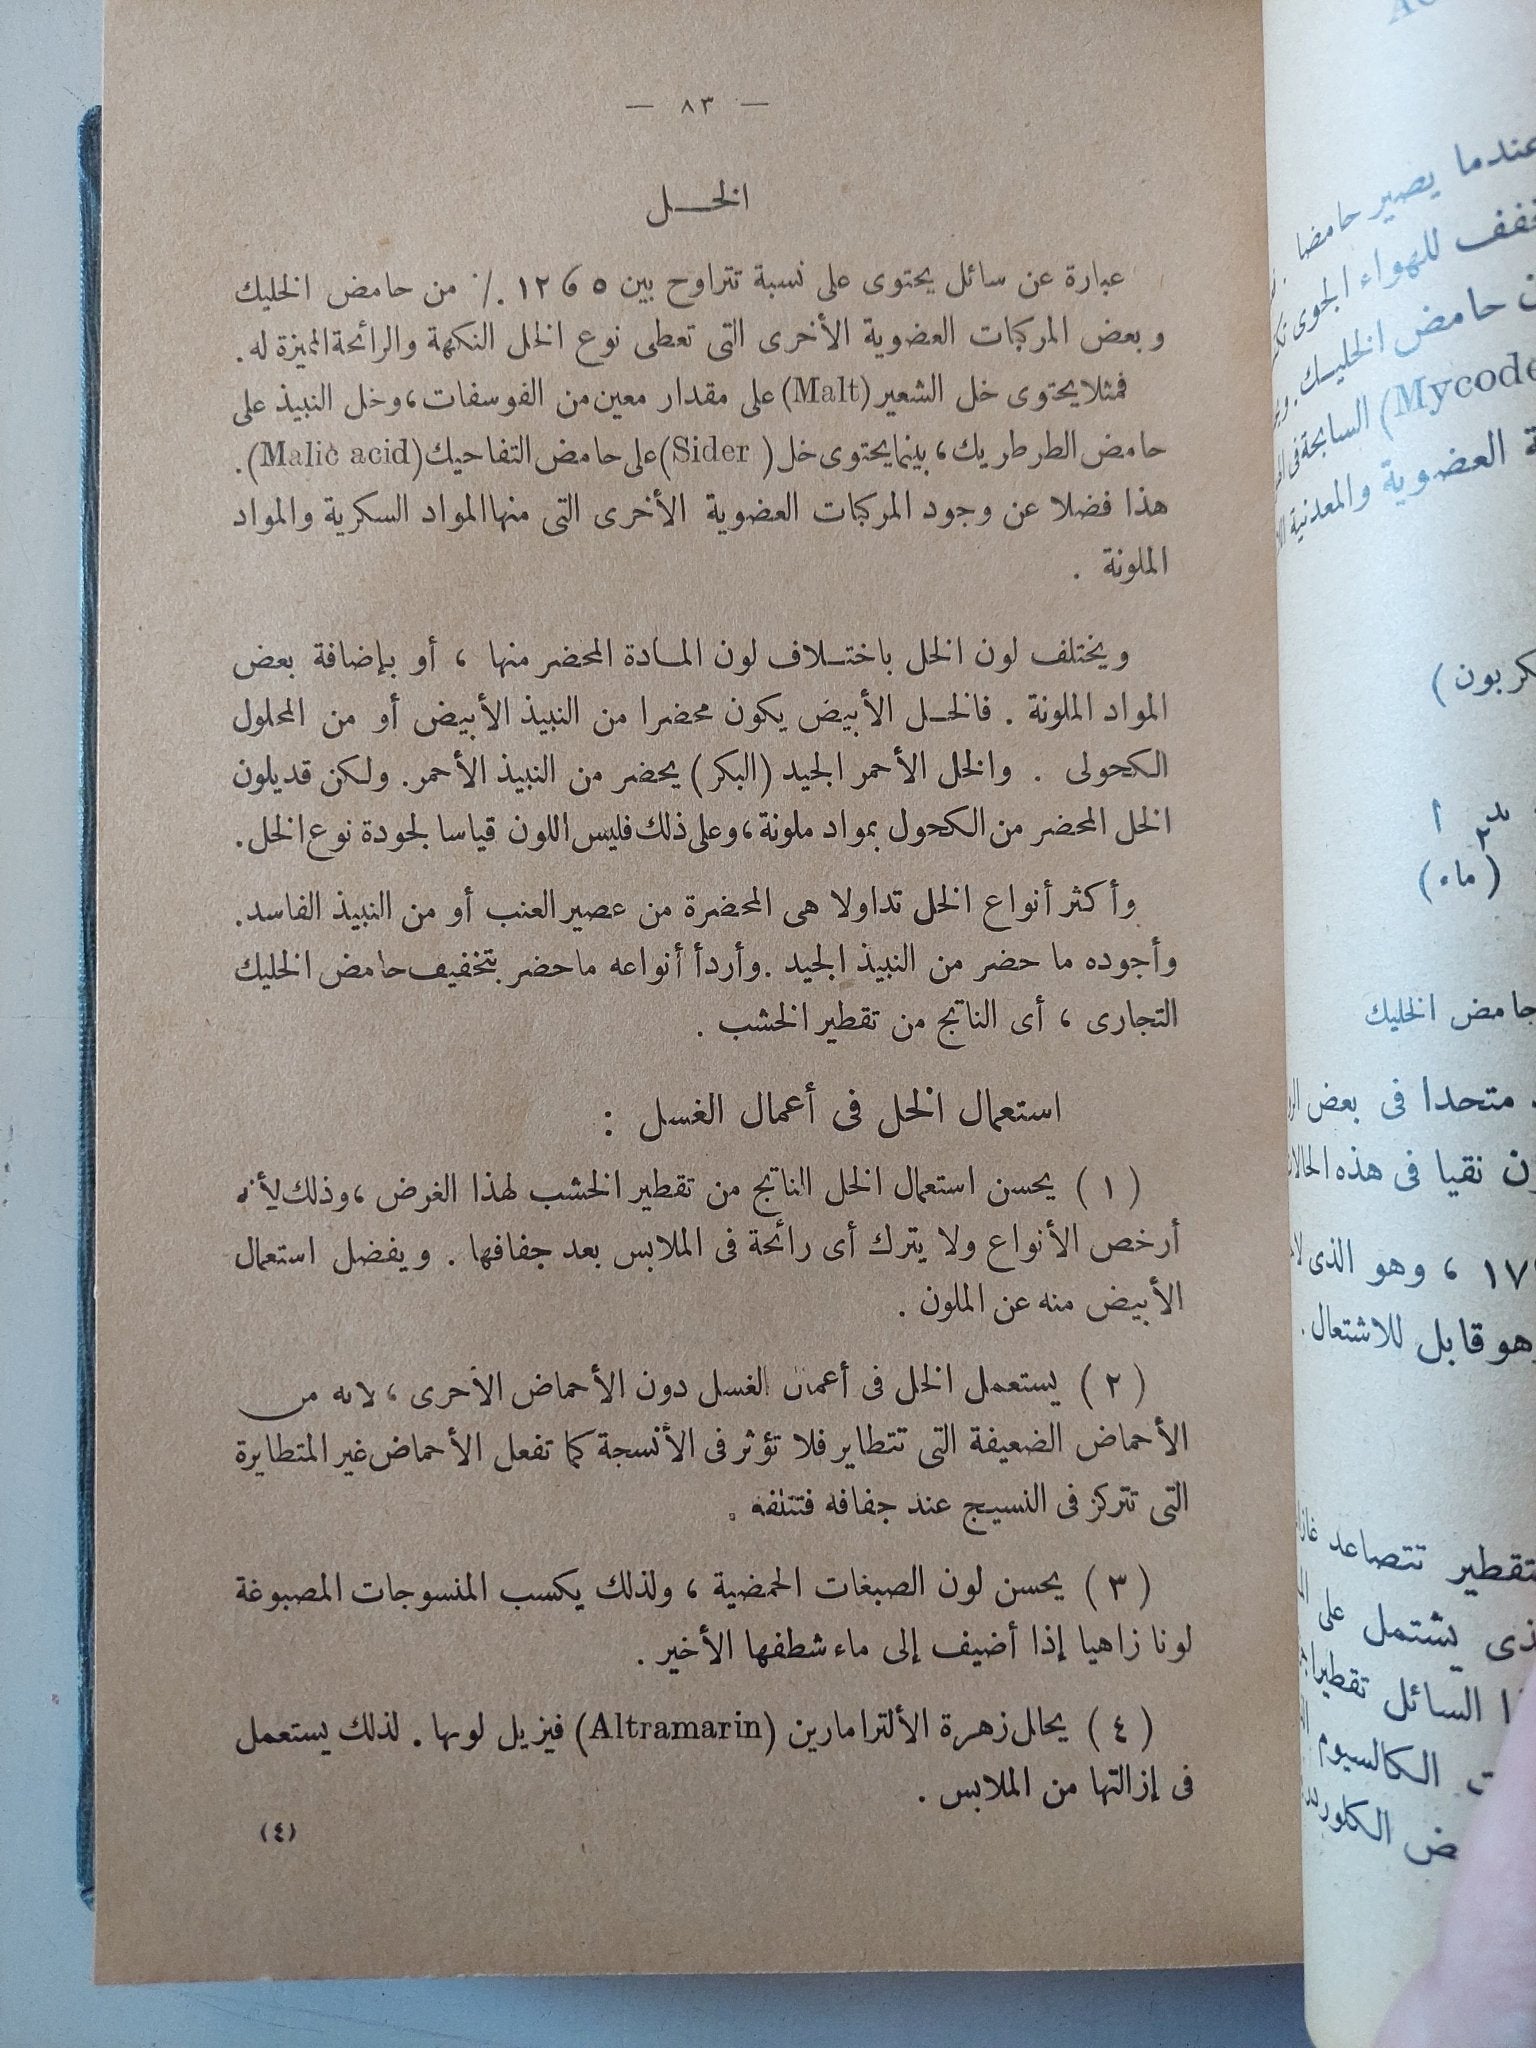 — ٨٣ —
الخـــل
عبارة عن سائل يحتوى على نسبة تتراوح بين ٥ و ١٢ ./· من حامض الخليك
وبعض المركبات العضوية الأخرى التى تعطى نوع الخل النكهة والرائحة المميزة له .
فمثلا يحتوى خل الشعير (Malt) على مقدار معين من الفوسفات ، وخل النبيذ على
حامض الطرطريك ، بينما يحتوى خل ( Sider) على حامض التفاحيك (Malic acid) .
هذا فضلا عن وجود المركبات العضوية الأخرى التى منها المواد السكرية والمواد
الملونة .
ويختلف لون الخل باختـلاف لون المـادة المحضر منها ، أو بإضافة بعض
المواد الملونة . فالخـل الأبيض يكون محضرا من النبيذ الأبيض أو من المحلول
الكحولى . والخل الأحمر الجيد (البكر) يحضر من النبيذ الأحمر . ولكن قد يلون
الخل المحضر من الكحول بمواد ملونة ، وعلى ذلك فليس اللون قياسا لجودة نوع الخل .
وأكثر أنواع الخل تداولا هى المحضرة من عصير العنب أو من النبيذ الفاسد .
وأجوده ما حضر من النبيذ الجيد . وأردأ أنواعه ما حضر بتخفيف حامض الخليك
التجارى ، أى الناتج من تقطير الخشب .
استعمال الخل فى أعمال الغسل :
( ١ ) يحسن استعمال الخل الناتج من تقطير الخشب لهذا الغرض ، وذلك لأنه
أرخص الأنواع ولا يترك أى رائحة فى الملابس بعد جفافها . ويفضل استعمال
الأبيض منه عن الملون .
( ٢ ) يستعمل الخل فى أعمال الغسل دون الأحماض الأخرى ، لأنه من
الأحماض الضعيفة التى تتطاير فلا تؤثر فى الأنسجة كما تفعل الأحماض غير المتطايرة
التى تتركز فى النسيج عند جفافه فتتلفه .
( ٣ ) يحسن لون الصبغات الحمضية ، ولذلك يكسب المنسوجات المصبوغة
لونا زاهيا إذا أضيف إلى ماء شطفها الأخير .
( ٤ ) يحلل زهرة الألترامارين (Altramarin) فيزيل لونها . لذلك يستعمل
فى إزالتها من الملابس .
(٤)
عندما يصير حامضا
للهواء الجوى
حامض الخليـك .
السابحة فى
العضوية والمعدنية
(ماء)
حامض الخليك
متحدا فى بعض
نقيا فى هذه
، وهو الذى
وهو قابل للاشتعال .
تتصاعد
يشتمل على
السائل تقطيرا
الكالسيوم